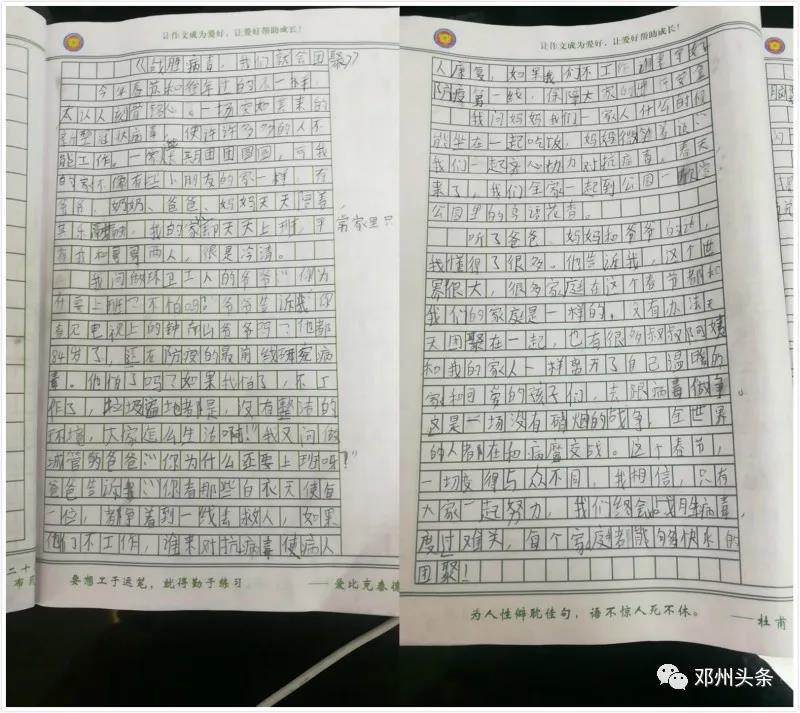 让作文成为爱好，让爱好帮助成长！
《战胜病毒，我们就会团聚》
今年春节和往年过的不一样，
太让人刻骨铭心。一场突如其来的
新型冠状病毒，使许许多多的人不
能工作。一家人团团圆圆，可我
的家不像有些小朋友的家一样，有
爷爷、奶奶、爸爸、妈妈天天陪着，
其乐融融。我的家却天天上班，平常家里只
有我和哥哥两人，很是冷清。
我问做环卫工人的爷爷："你为
什么要上班？不怕吗？"爷爷告诉我："你
看见电视上的钟南山爷爷吗？他都
84岁了，还在防疫的最前线研究病
毒。他怕了吗？如果我怕了，不工
作了，垃圾遍地都是，没有整洁的
环境，大家怎么生活啊！"我又问做
城管的爸爸："你为什么还要上班呀？"
爸爸告诉我："你看那些白衣天使每
一位，都争着到一线去救人，如果
他们不工作，谁来对抗病毒使病人
二十
布
要想工于运笔，就得勤于练习
——爱比克泰德
让作文成为爱好，让爱好帮助成长！
人康复，如果我们不工作
防疫第一线，保障大家的安全
我问妈妈我们一家人什么时候
能坐在一起吃饭，妈妈微笑着说：
我们一起齐心协力对抗病毒，春天
来了，我们全家一起到公园一
公园里的鸟语花香。
听了爸爸、妈妈和爷爷的话，
我懂得了很多。他告诉我，这个世
界很大，很多家庭在这个春节都和
我们的家庭是一样的，没有办法天
天团聚在一起，也有很多叔叔阿姨
和我的家人一样离开了自己温暖的
家和可爱的孩子们，去跟病毒做争
这是一场没有硝烟的战争，全世界
的人都在和病魔交战。这个春节，
一切变得与众不同，我相信，只有
大家一起努力，我们终会战胜病毒，
度过难关，每个家庭都能够快乐的
团聚！
为人性僻耽佳句，语不惊人死不休。
——杜甫
邓州头条